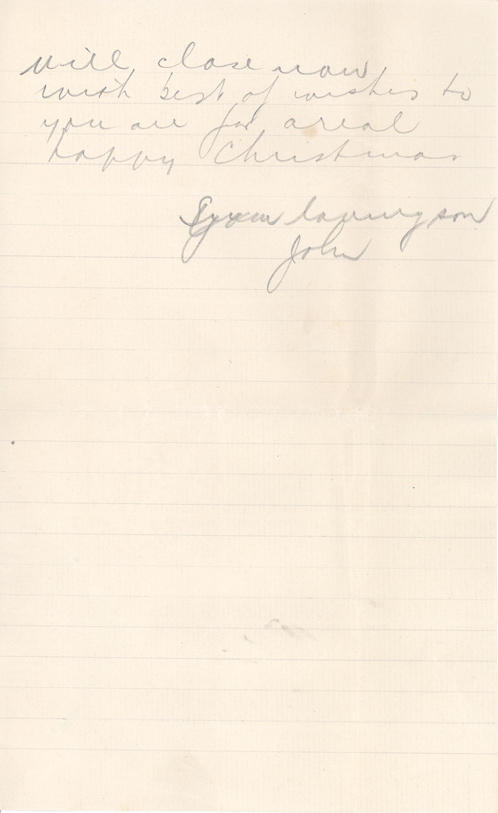 will close now
with best of wishes to
you all for a real
happy Christmas
Your loving son
John